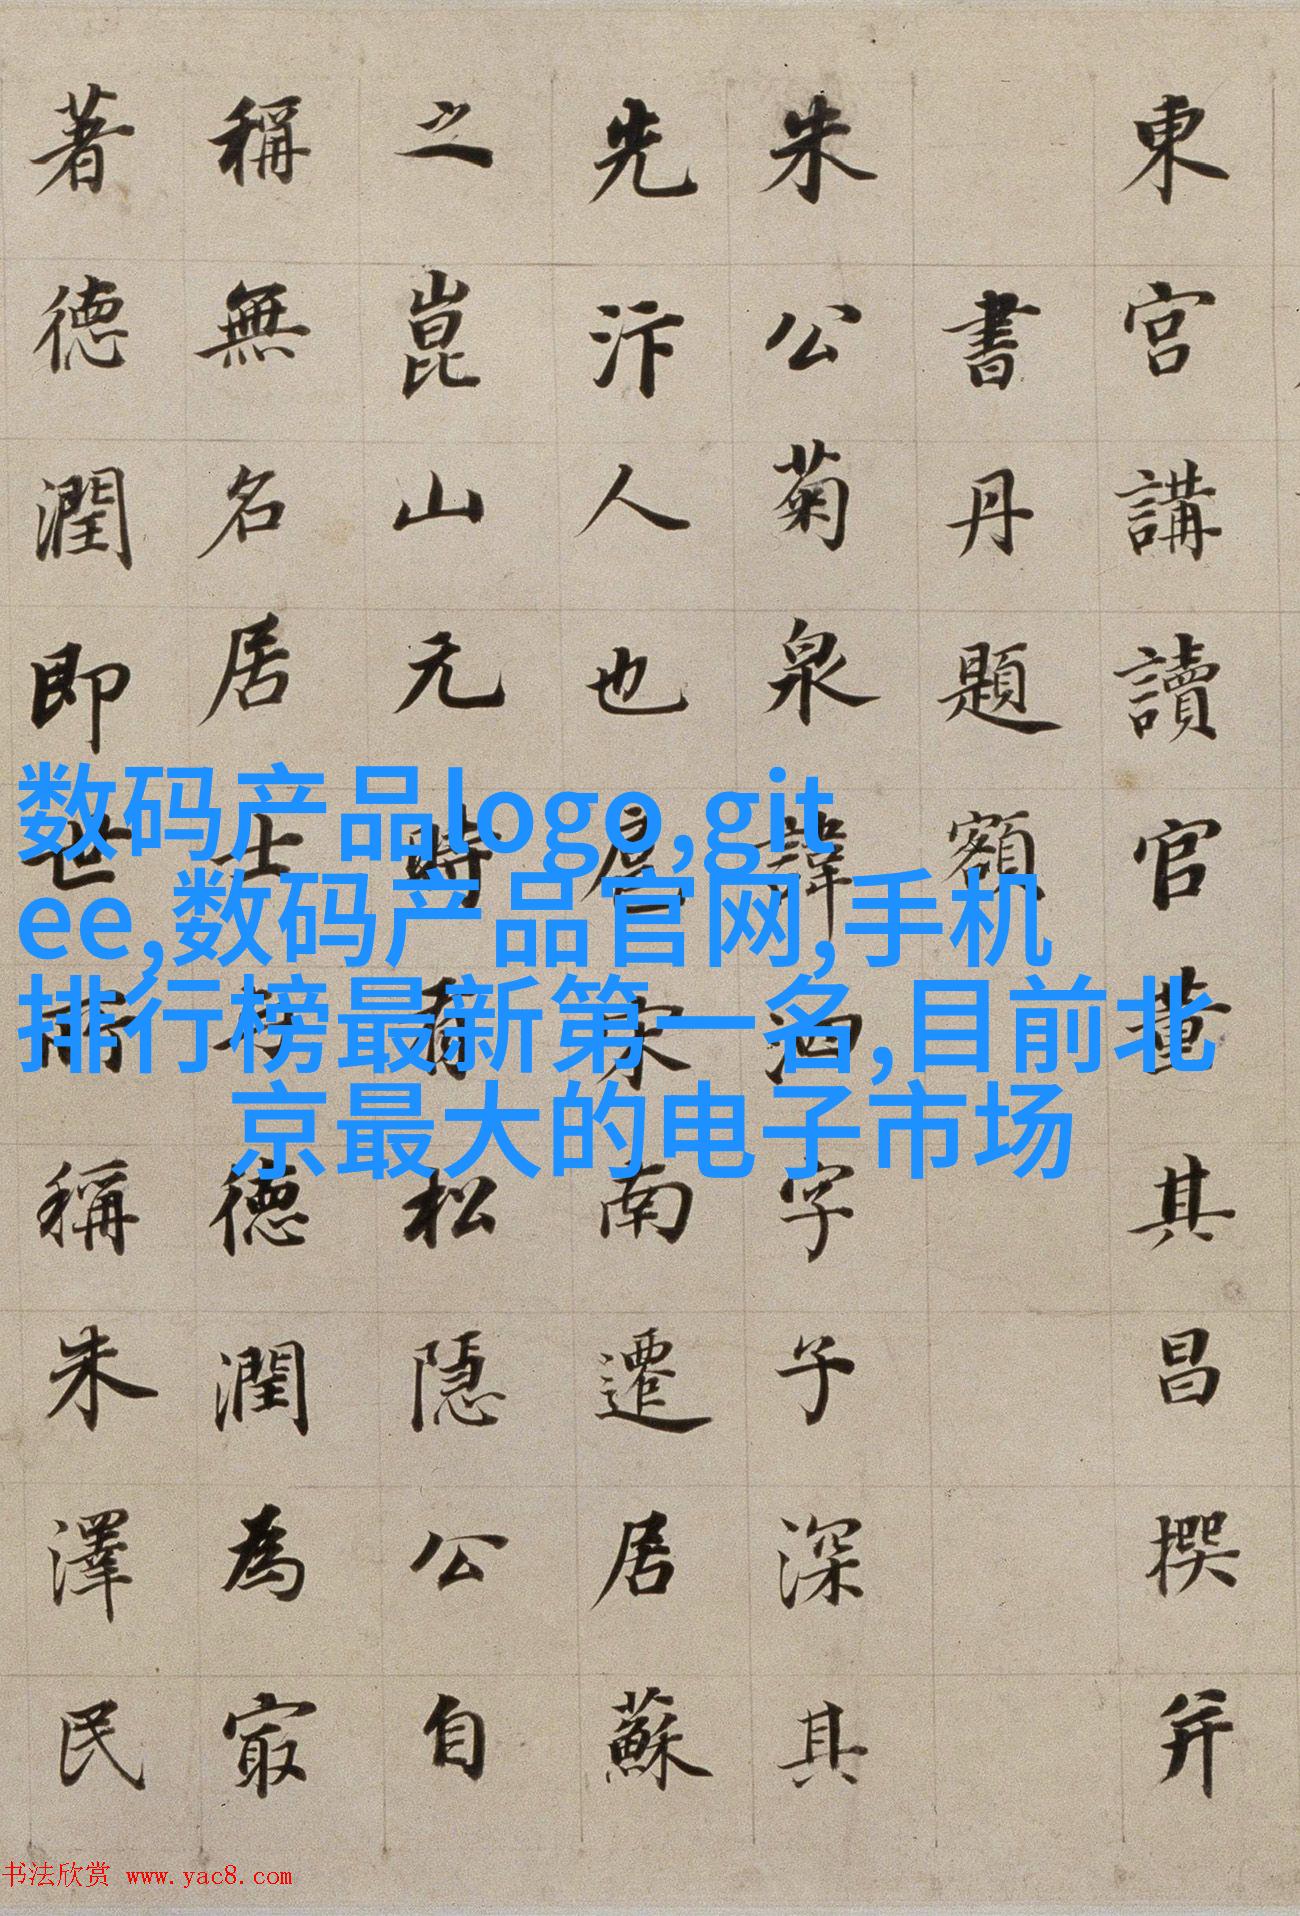 東宮講讀官董其昌撰并
書丹題額
朱公菊泉諱泗字子深其
先汴人也扈宋南遷居蘇
之崑山元時有松隱公自
稱無名居士子德潤為㝡
著德潤即世所稱朱澤民
数码产品logo,git
ee,数码产品官网,手机
排行榜最新第一名,目前北
京最大的电子市场
书法欣赏 www.yac8.com